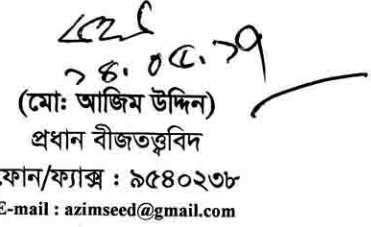 ১৪.০৫.১৭
(মোঃ আজিম উদ্দিন)
প্রধান বীজতত্ত্ববিদ
ফোন/ফ্যাক্স : ৯৫৪০২৩৮
E-mail : azimseed@gmail.com